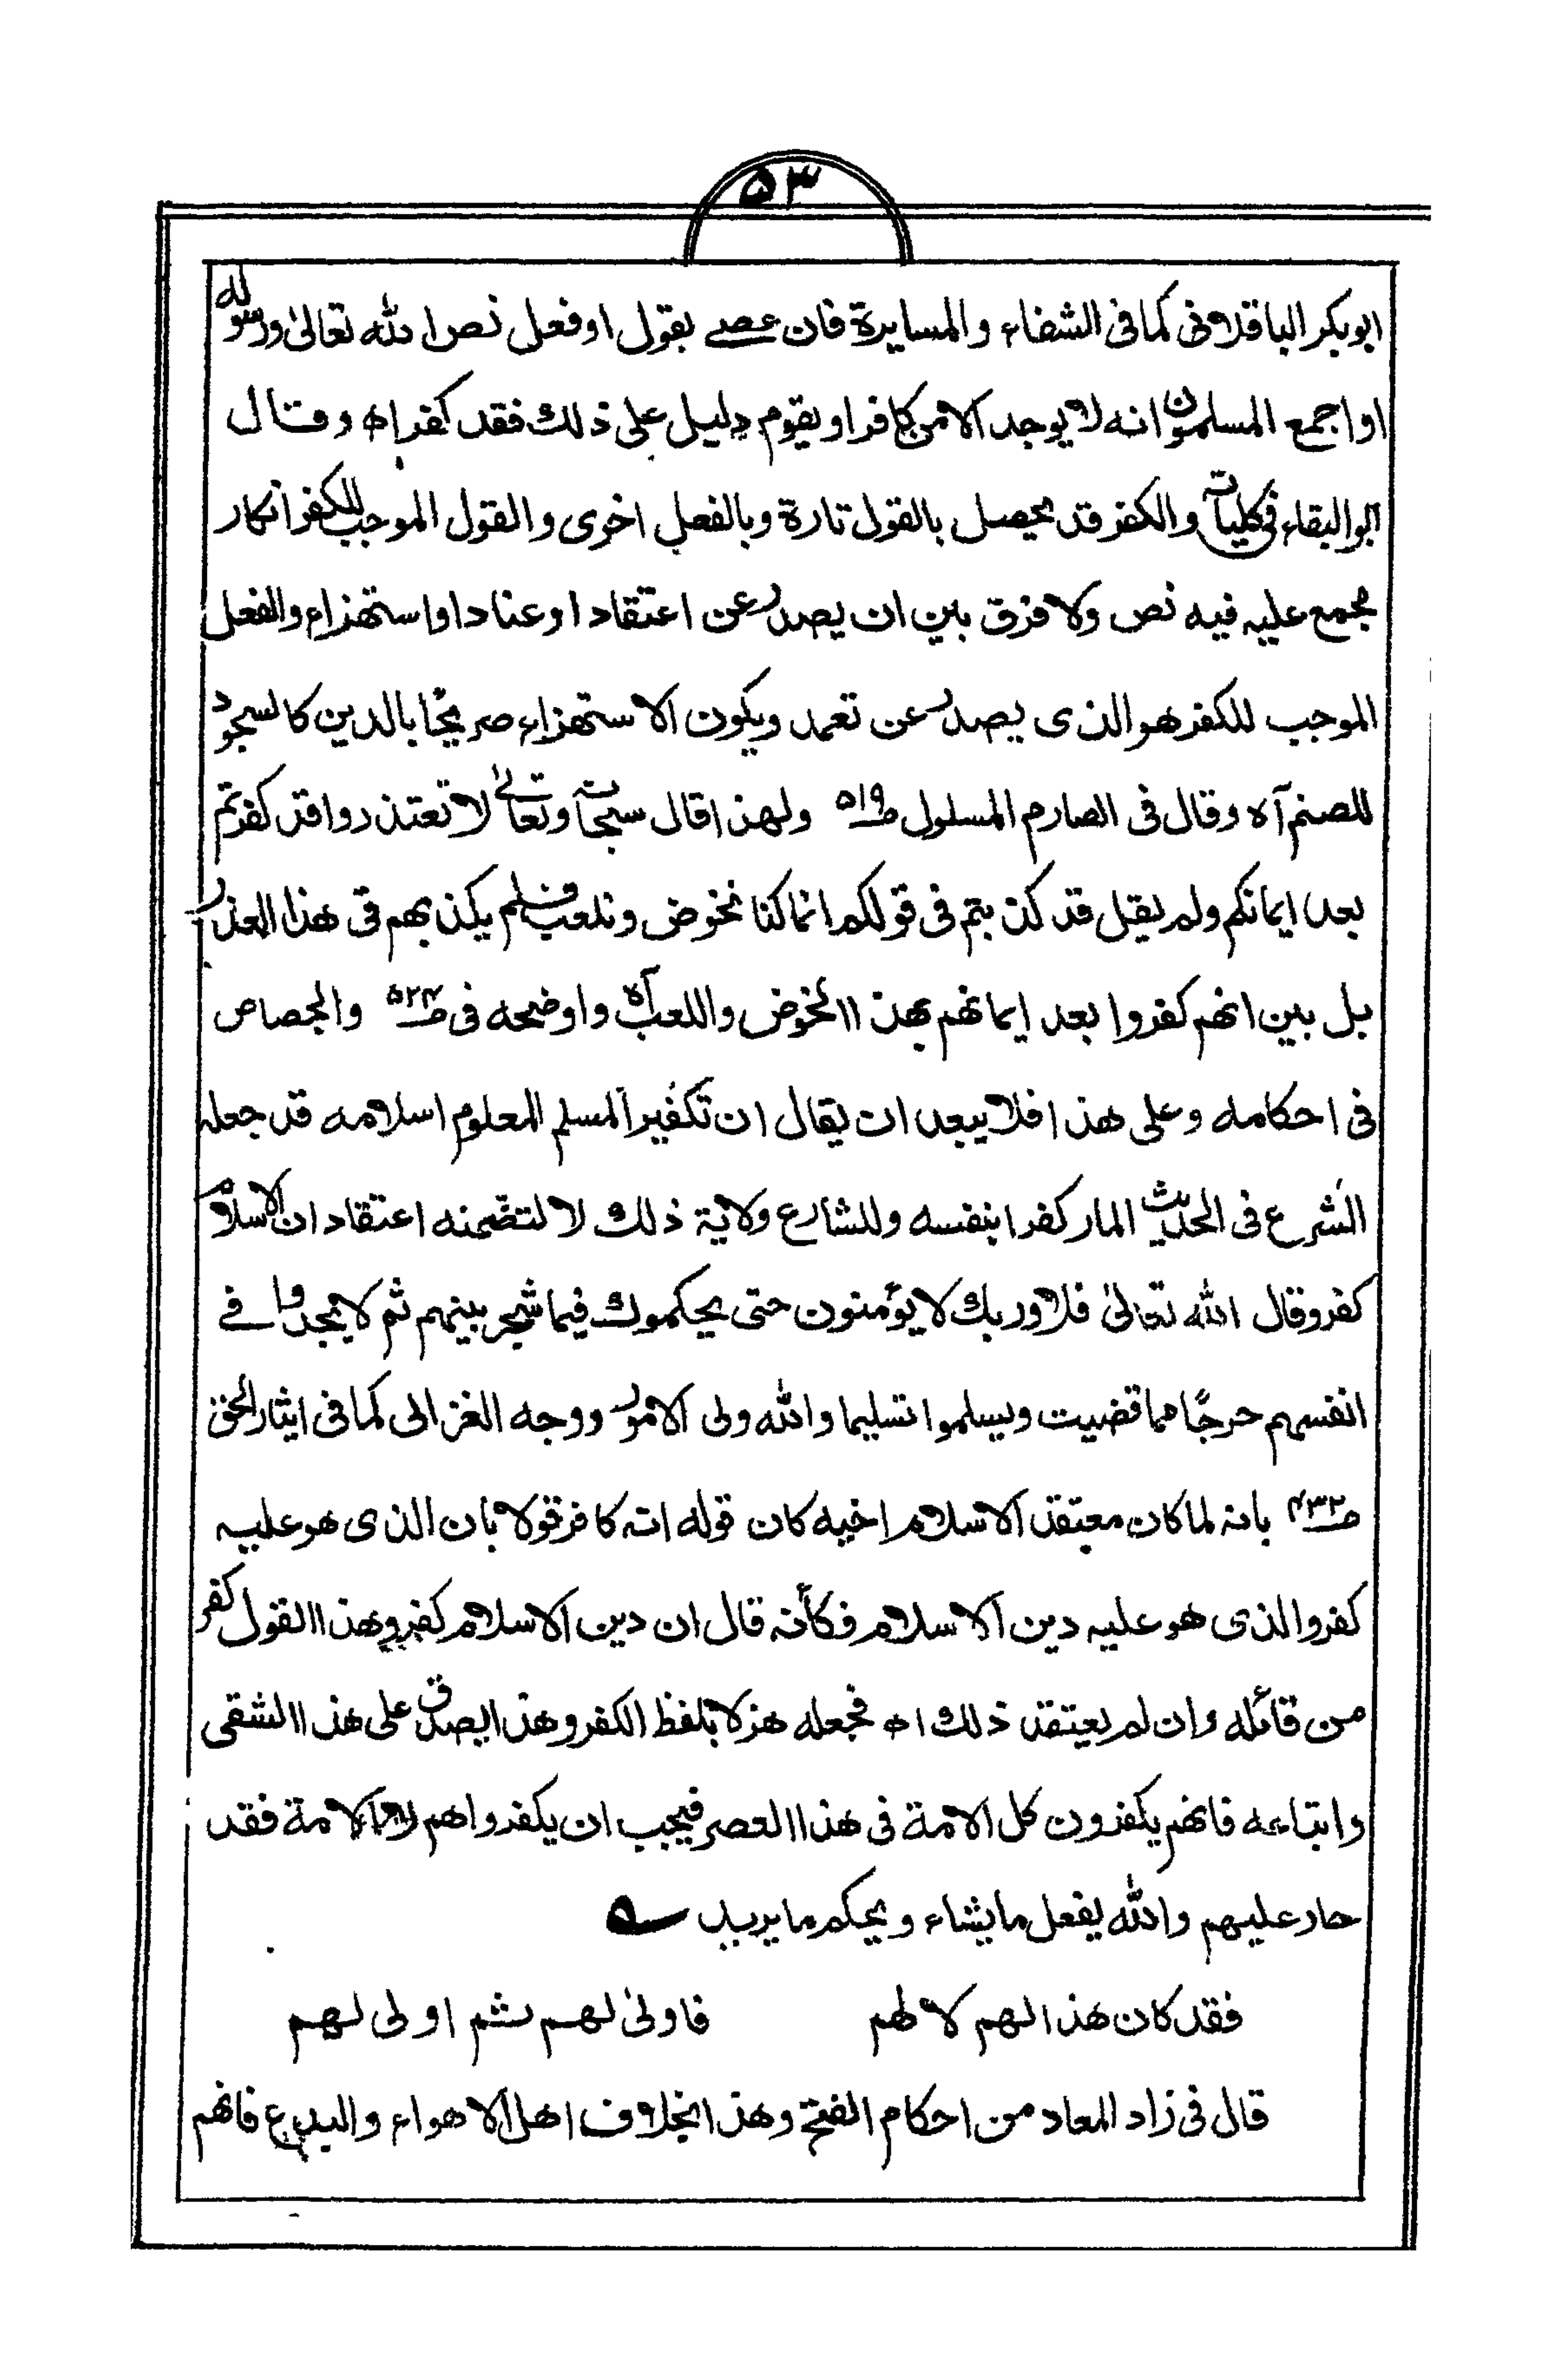 ۵۳
ابوبکر الباقلانی کما فی الشفاء والمسایرة فان عصے بقول اوفعل نص الله تعالیٰ ورسوله
او اجمع المسلمون انه لا یوجد الا من کافر او یقوم دلیل علی ذلك فقد کفر اھ وقال
ابو البقاء فی کلیاته والکفر قد یحصل بالقول تارة وبالفعل اخری والقول الموجب للکفر انکار
مجمع علیه فیه نص ولا فرق بین ان یصدر عن اعتقاد او عناد او استهزاء والفعل
الموجب للکفر هو الذی یصدر عن تعمد ویکون الاستهزاء صریحًا بالدین کالسجود
للصنم آه وقال فی الصارم المسلول ص۵۱۹ ولهذا قال سبحانه وتعالیٰ لا تعتذروا قد کفرتم
بعد ایمانکم ولم یقل قد کذبتم فی قولکم انما کنا نخوض ونلعب فلم یکذبهم فی هذا العذر
بل بین انهم کفروا بعد ایمانهم بهذا الخوض واللعب آه واوضحه فی ص۵۲۴ والجصاص
فی احکامه وعلی هذا فلا یبعد ان یقال ان تکفیر المسلم المعلوم اسلامه قد جعله
الشرع فی الحدیث المار کفرا بنفسه وللشارع ولایة ذلك لا لتضمنه اعتقاد ان الاسلام
کفر وقال الله تعالیٰ فلا وربك لا یؤمنون حتی یحکموك فیما شجر بینهم ثم لا یجدوا فے
انفسهم حرجًا مما قضیت ویسلموا تسلیما والله ولی الامور ووجه الغزالی کما فی ایثار الحق
ص۴۳۲ بانه لما کان معتقد الاسلام اخیه کان قوله انه کافر قولا بان الذی هو علیه
کفر والذی هو علیه دین الاسلام فکأنه قال ان دین الاسلام کفر وهذا القول کفر
من قائله وان لم یعتقد ذلك اھ فجعله هزلا بلفظ الکفر وهذا یصدق علی هذا الشقی
واتباعه فانهم یکفرون کل الامة فی هذا العصر فیجب ان یکفروا هم لا الامة فقد
حار علیهم والله یفعل ما یشاء ویحکم ما یرید
فقد کان هذا لهم لا لهم فاولیٰ لهم ثم اولی لهم
قال فی زاد المعاد من احکام الفتح وهذا بخلاف اهل الاهواء والبدع فانهم